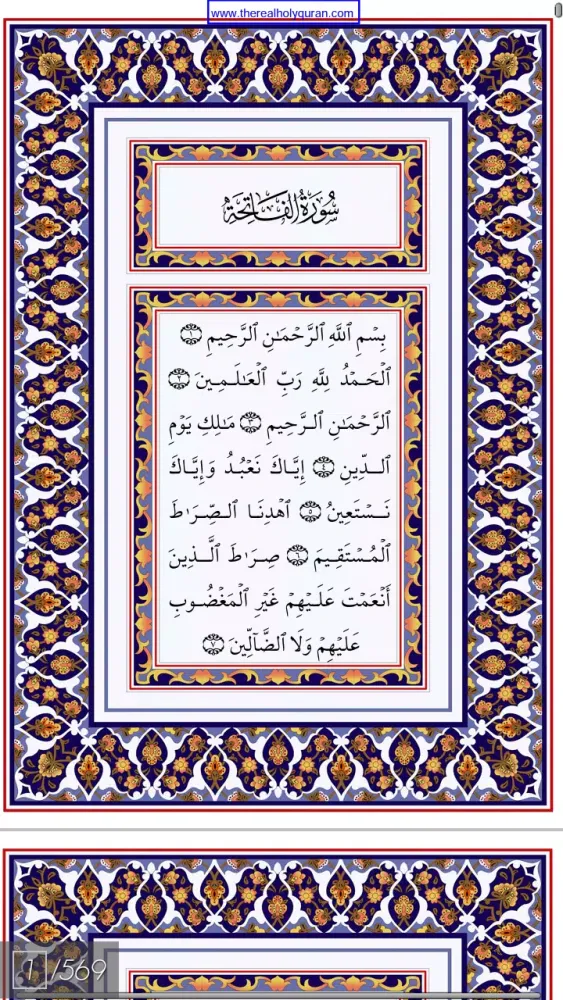 www.therealholyquran.com
سُورَةُ الفَاتِحَة
بِسْمِ ٱللَّهِ ٱلرَّحْمَـٰنِ ٱلرَّحِيمِ ١
ٱلْحَمْدُ لِلَّهِ رَبِّ ٱلْعَـٰلَمِينَ ٢
ٱلرَّحْمَـٰنِ ٱلرَّحِيمِ ٣ مَـٰلِكِ يَوْمِ
ٱلدِّينِ ٤ إِيَّاكَ نَعْبُدُ وَإِيَّاكَ
نَسْتَعِينُ ٥ ٱهْدِنَا ٱلصِّرَٰطَ
ٱلْمُسْتَقِيمَ ٦ صِرَٰطَ ٱلَّذِينَ
أَنْعَمْتَ عَلَيْهِمْ غَيْرِ ٱلْمَغْضُوبِ
عَلَيْهِمْ وَلَا ٱلضَّآلِّينَ ٧
1/569